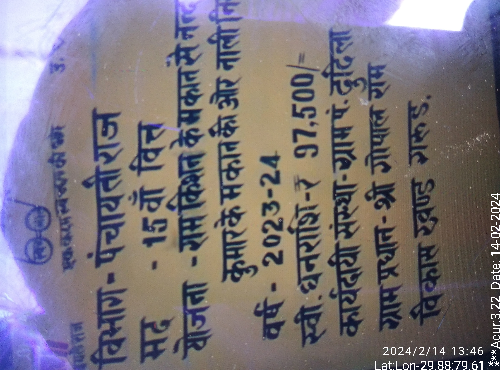 एक कदम स्वच्छता की ओर
विभाग - पंचायती राज
मद - 15वाँ वित्त
योजना - राम किशन के मकान से नन्द
कुमार के मकान की ओर नाली नि
वर्ष - 2023-24
स्वी. धनराशि - ₹ 97,500/=
कार्यदायी संस्था - ग्राम पं. दुदिला
ग्राम प्रधान - श्री गोपाल राम
विकास खण्ड गरुड.
2024/2/14 13:46
Lat:Lon-29.88:79.61
***Acur:3.22, Date: 14-02-2024